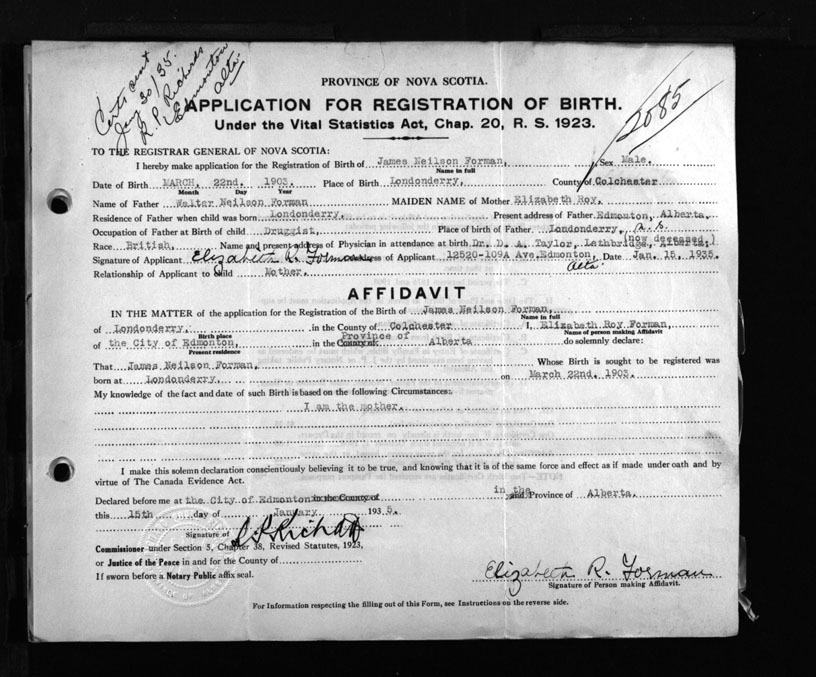 Certs sent
Jany 30/35.
R. P. Richards
Edmonton
alta.
2085
PROVINCE OF NOVA SCOTIA.
APPLICATION FOR REGISTRATION OF BIRTH.
Under the Vital Statistics Act, Chap. 20, R. S. 1923.
TO THE REGISTRAR GENERAL OF NOVA SCOTIA:
I hereby make application for the Registration of Birth of James Neilson Forman, Sex Male.
Name in full
Date of Birth MARCH, 22nd. 1903. Place of Birth Londonderry, County of Colchester
Month Day Year
Name of Father Walter Neilson Forman MAIDEN NAME of Mother Elizabeth Roy,
Residence of Father when child was born Londonderry, Present address of Father Edmonton, Alberta.
Occupation of Father at Birth of child Druggist, Place of birth of Father. Londonderry,
(now deceased.)
Race British, Name and present address of Physician in attendance at birth. Dr. D. A. Taylor, Lethbridge, Alberta;
Signature of Applicant Elizabeth R. Forman Address of Applicant 12520-109A Ave. Edmonton, Date Jan. 15, 1935.
alta.
Relationship of Applicant to Child Mother.
AFFIDAVIT
IN THE MATTER of the application for the Registration of the Birth of James Neilson Forman,
Name in full
of Londonderry, in the County of Colchester I, Elizabeth Roy Forman,
Birth place Name of person making Affidavit
Province of
of the City of Edmonton, in the County of Alberta do solemnly declare:
Present residence
That James Neilson Forman, Whose Birth is sought to be registered was
born at Londonderry, on March 22nd. 1903.
My knowledge of the fact and date of such Birth is based on the following Circumstances:
I am the mother.
I make this solemn declaration conscientiously believing it to be true, and knowing that it is of the same force and effect as if made under oath and by
virtue of The Canada Evidence Act.
in the
Declared before me at the City of Edmonton in the County of and Province of Alberta.
this 15th day of January 1935.
Signature of
Commissioner under Section 5, Chapter 38, Revised Statutes, 1923,
or Justice of the Peace in and for the County of
If sworn before a Notary Public affix seal.
Elizabeth R. Forman
Signature of Person making Affidavit.
For Information respecting the filling out of this Form, see Instructions on the reverse side.